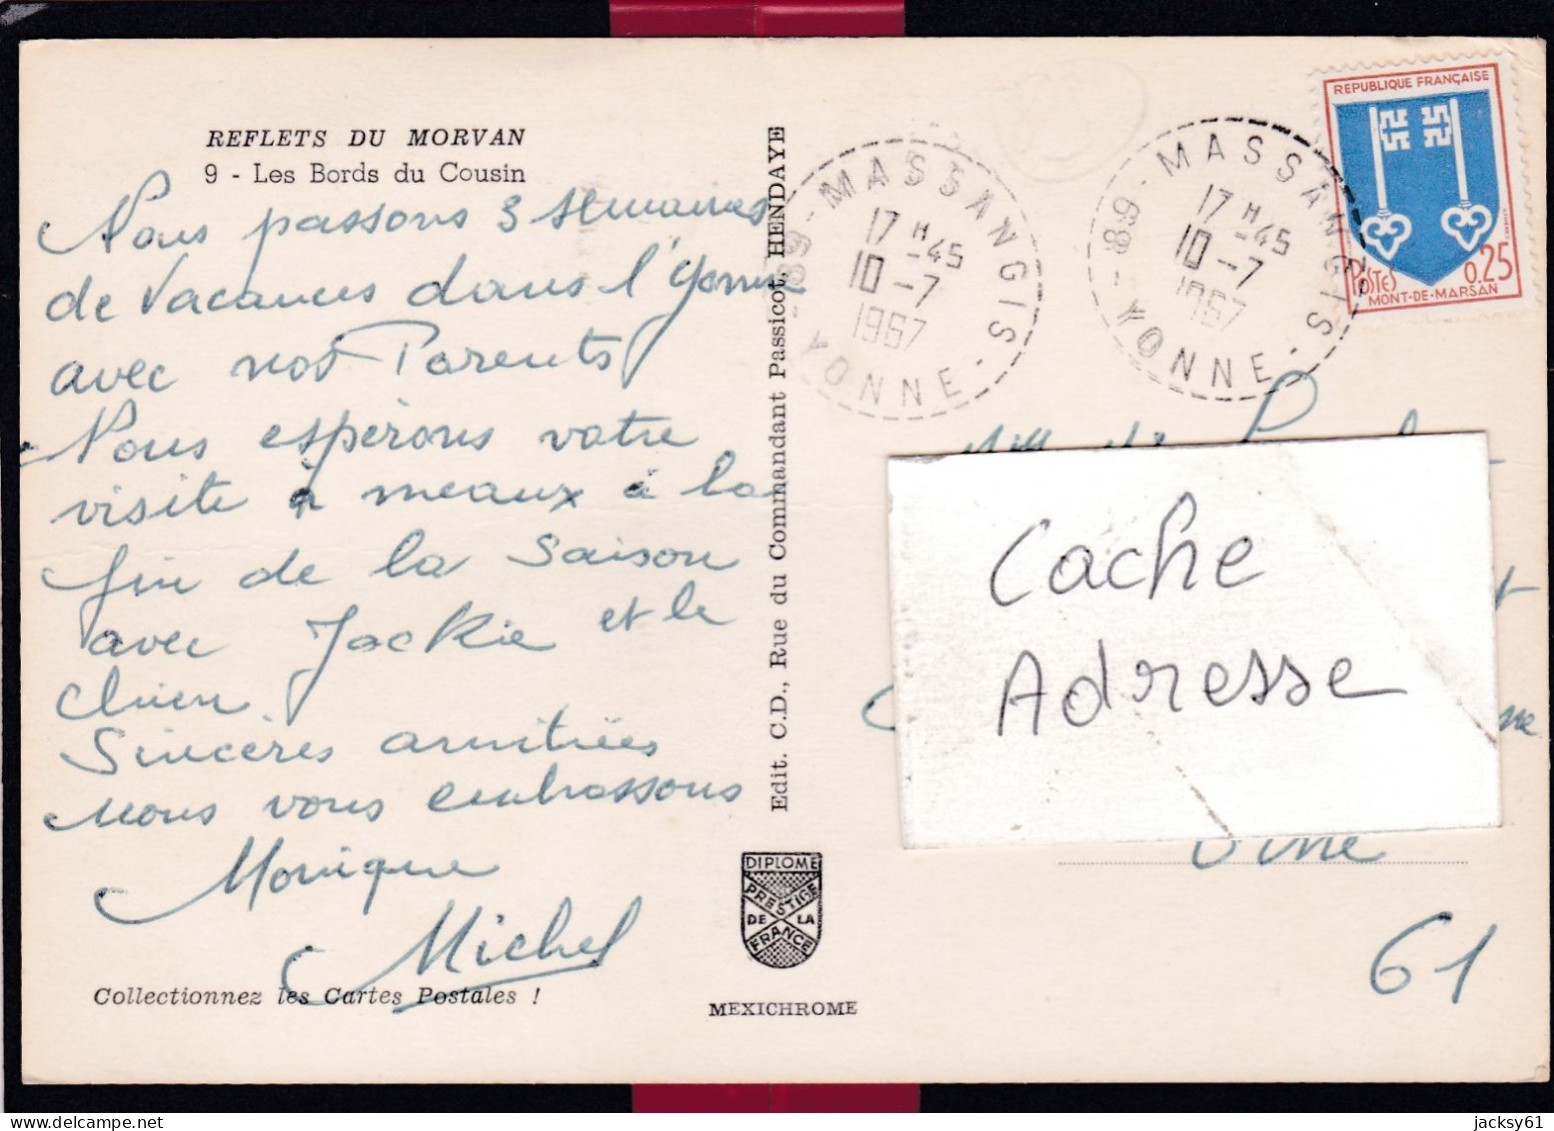 REFLETS DU MORVAN
9 - Les Bords du Cousin
Nous passons 3 semaines
de Vacances dans l'Yonne
avec nos Parents
Nous espérons votre
visite à meaux à la
fin de la Saison
avec Jackie et le
chien
Sincères amitiées
nous vous embrassons
Monique
Michel
Collectionnez les Cartes Postales !
Edit. C.D., Rue du Commandant Passicot HENDAYE
DIPLOME
PRESTIGE
DE LA
FRANCE
MEXICHROME
MASSANGIS
17 H -45
10 -7
1967
-89- YONNE-
MASSANGIS
17 H -45
10 -7
1967
-89- YONNE-
REPUBLIQUE FRANÇAISE
POSTES
0.25
MONT-DE-MARSAN
Cache
Adresse
Orne
61
jacksy61